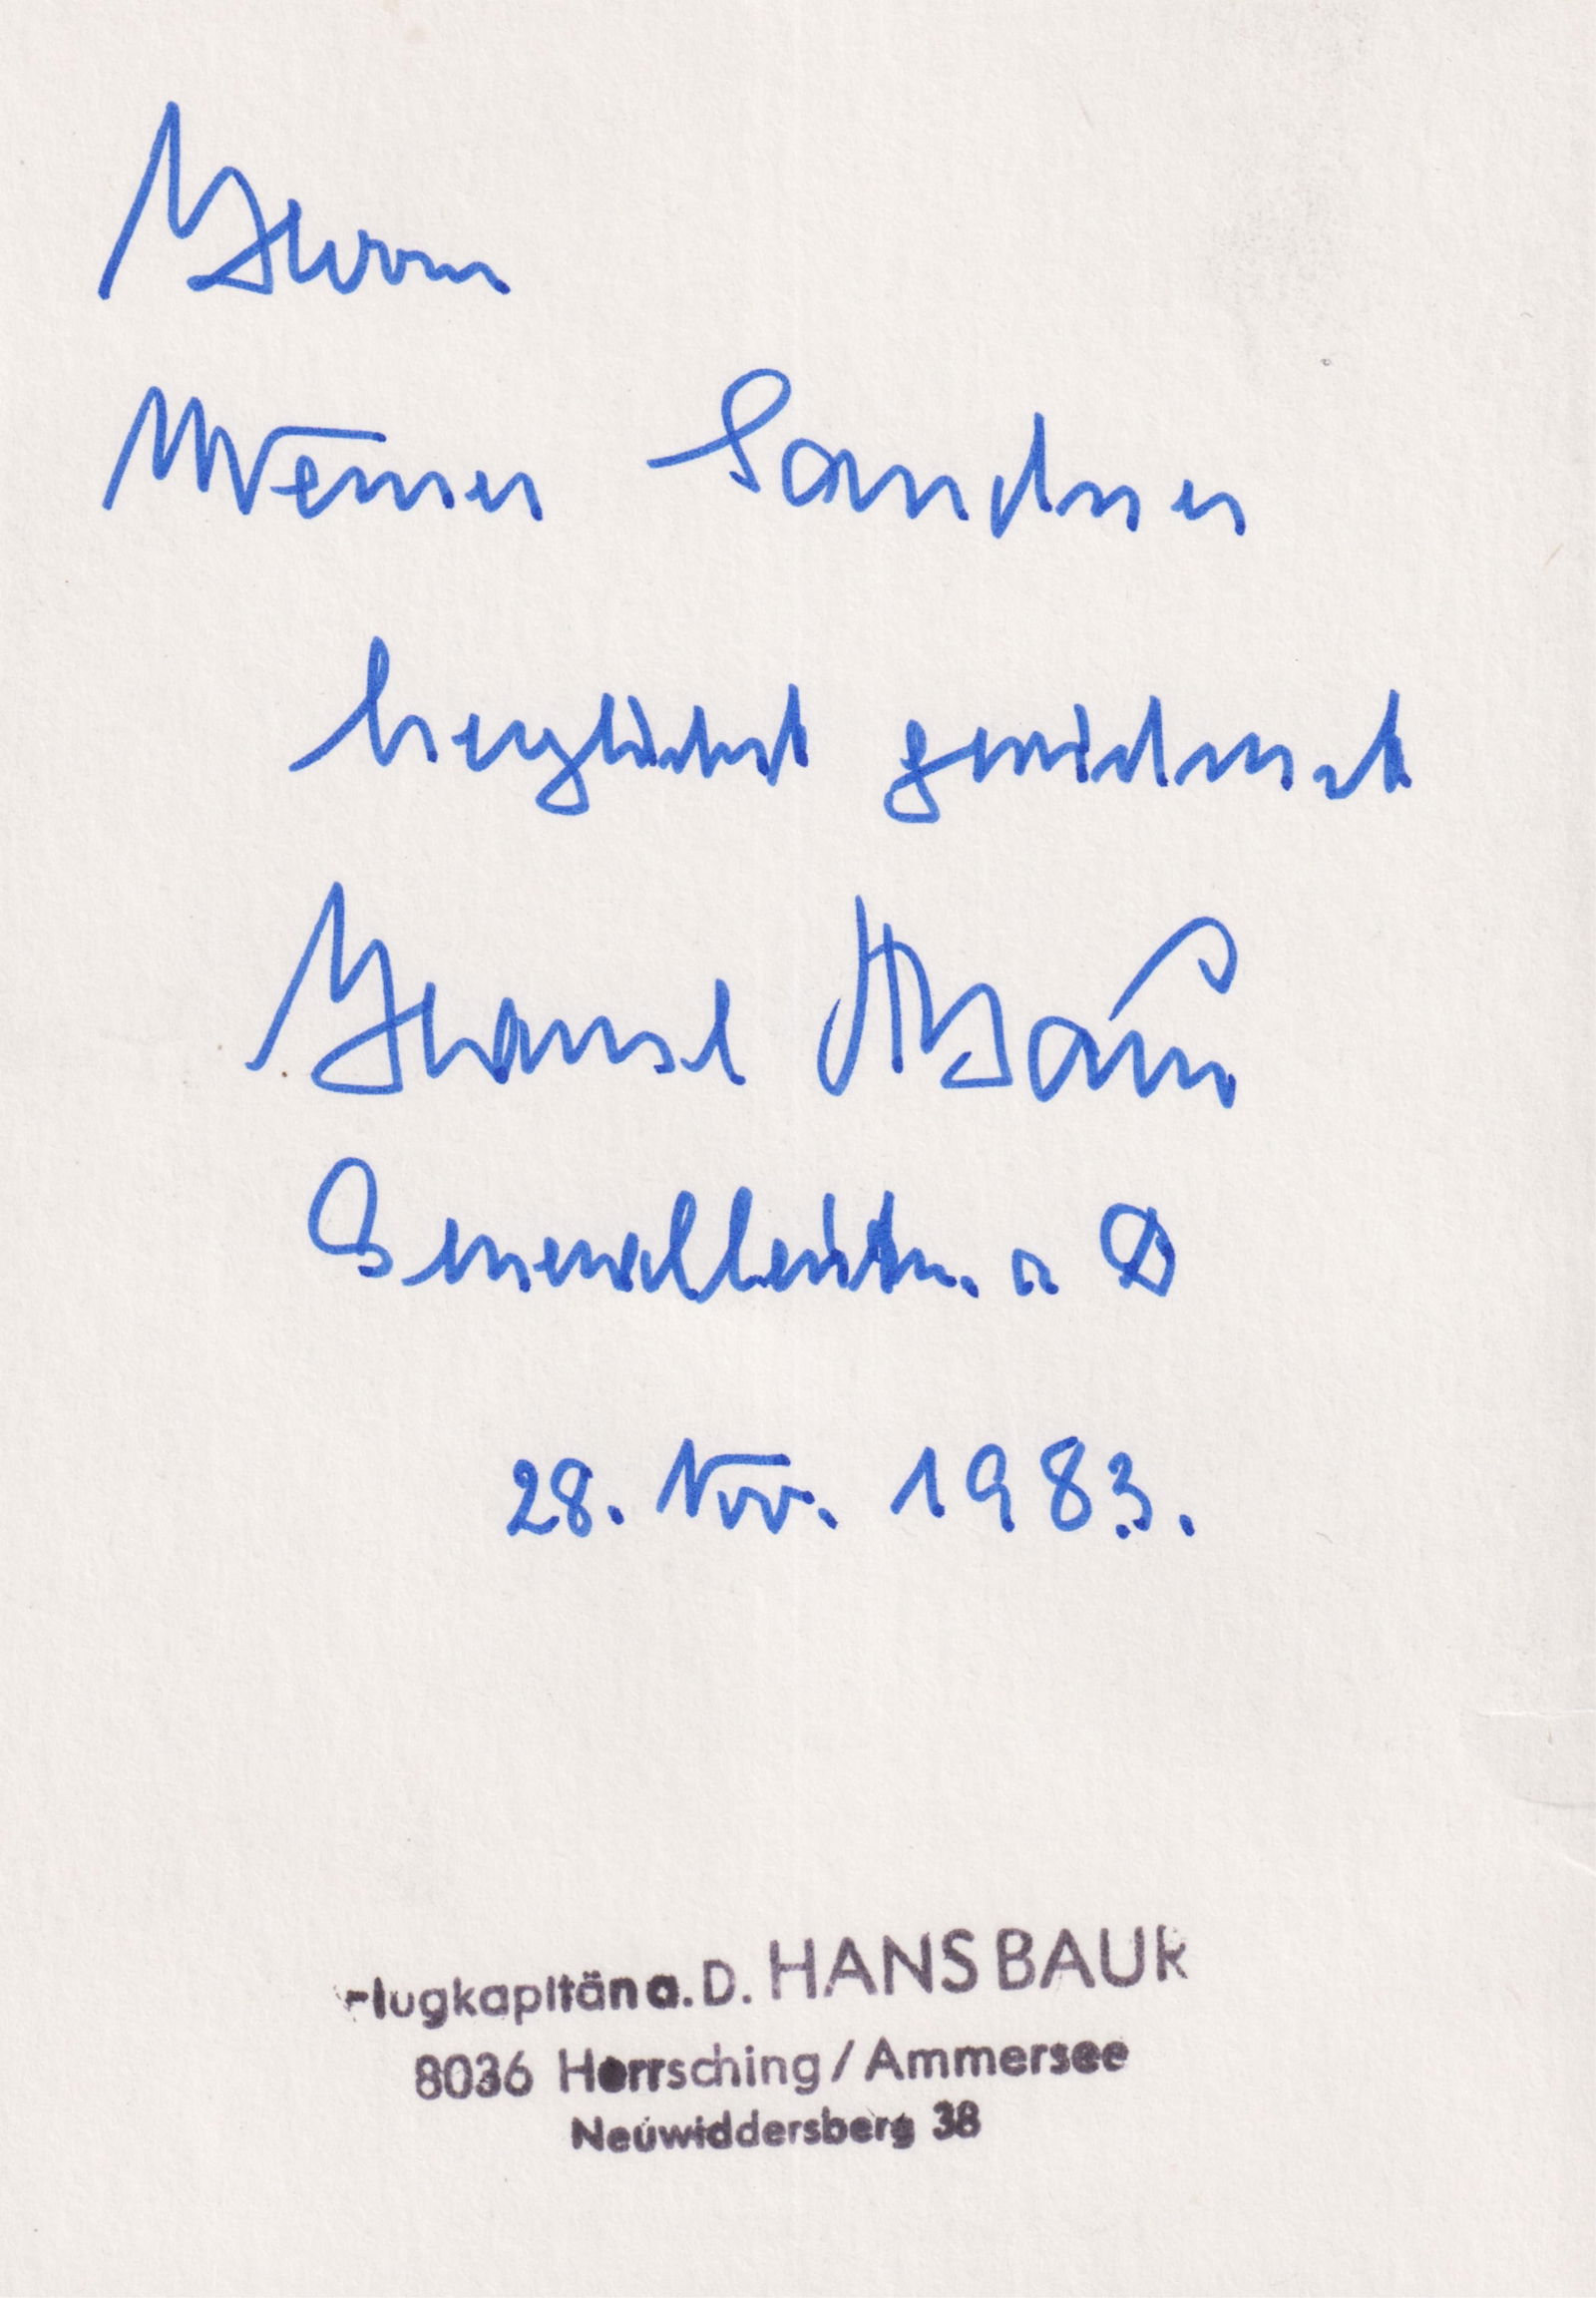 Herrn
Werner Sandner
herzlichst gewidmet
Hansl Baur
Generalleutn. a D
28. Nov. 1983.
Flugkapitän a.D. HANS BAUR
8036 Herrsching / Ammersee
Neuwiddersberg 38